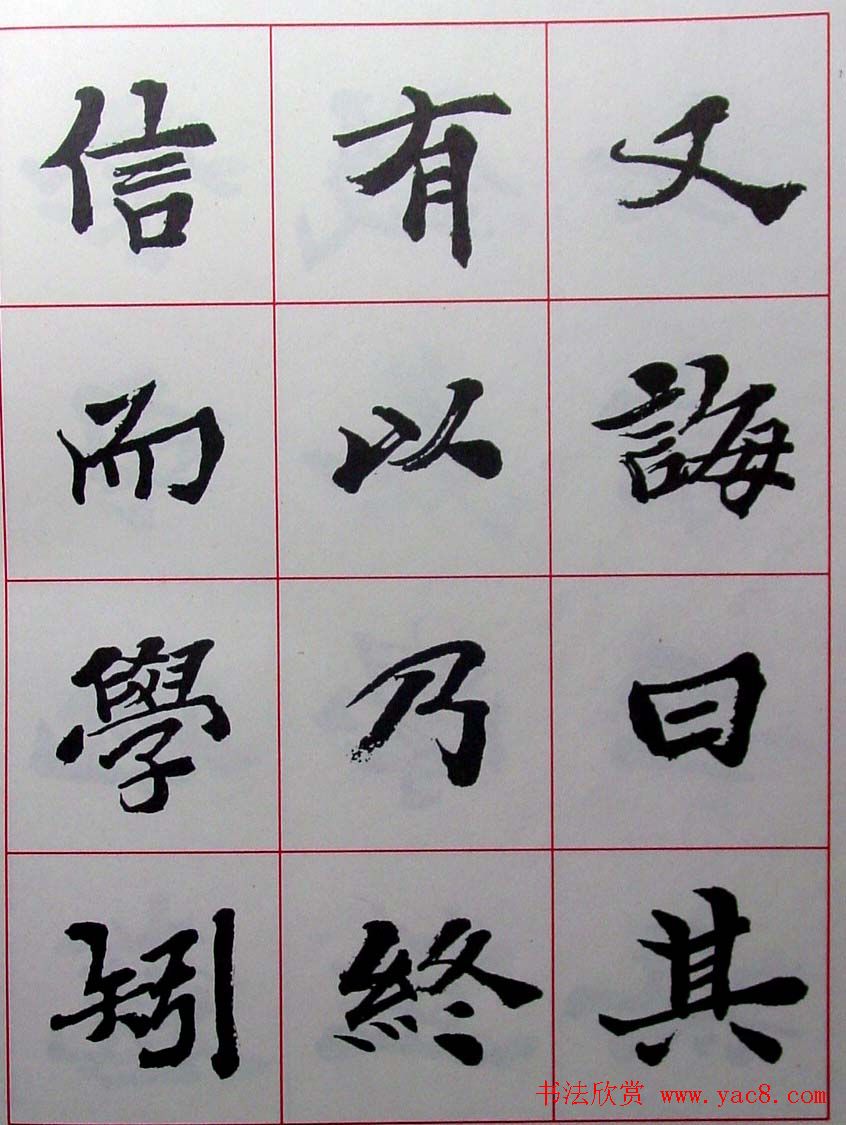 又誨曰其
有以乃終
信而學矧
书法欣赏 www.yac8.com